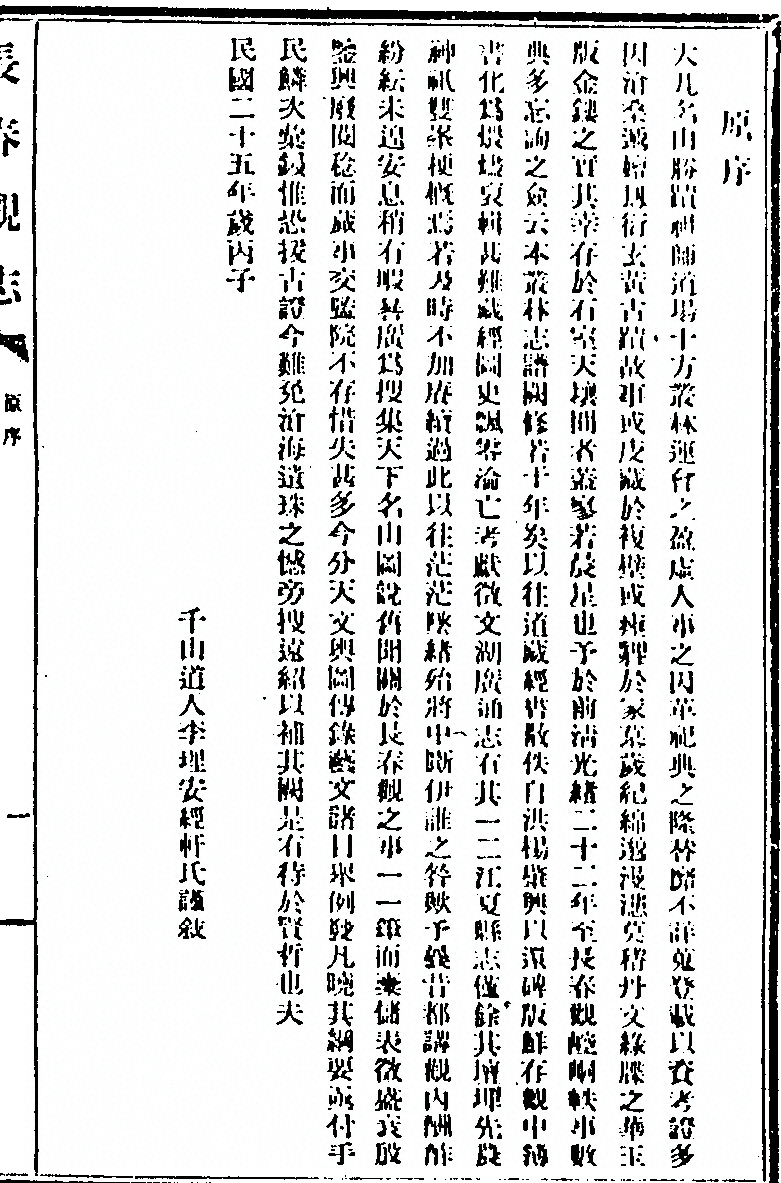 原序
大凡名山勝蹟祖師道場十方叢林運會之盈虛人事之因革祀典之隆替靡不詳蒐登載以資考證多
因滄桑遞嬗風衍玄黃古蹟故事或庋藏於複壁或癉於家乘歲紀綿邈漫漶莫稽丹文綠牒之華玉
版金鏤之實其幸存於石室天壤間者蓋寥若晨星也予於前清光緒二十二年至長春觀瞻嗣軼事數
典多忘詢之僉云本叢林志譜闕修若十年矣以往道藏經書散佚自洪楊崛興以還碑版鮮存觀中簿
書化為煨燼裒輯甚難藏經國史飄零淪亡考獻徵文湖廣通志有其一二江夏縣志僅餘其壇埋先哲
神祇豐采梗概焉若及時不加賡續過此以往茫茫墜緒殆將中斷伊誰之咎歟予疇昔都講觀內酬酢
紛紜未遑安息稍有暇晷廣為搜集天下名山圖說舊聞關於長春觀之事一一筆而儲表徵盛衰殷
鑒興廢閱稔而蕆事交監院不存惜失甚多今分天文輿圖傳錄藝文諸目舉例發凡曉其綱要亟付手
民鱗次彙鋟惟恐援古證今難免滄海遺珠之憾旁搜遠紹以補其闕是有待於賢哲也夫
民國二十五年歲丙子
千山道人李理安經軒氏謹敘
長春觀志
原序
一